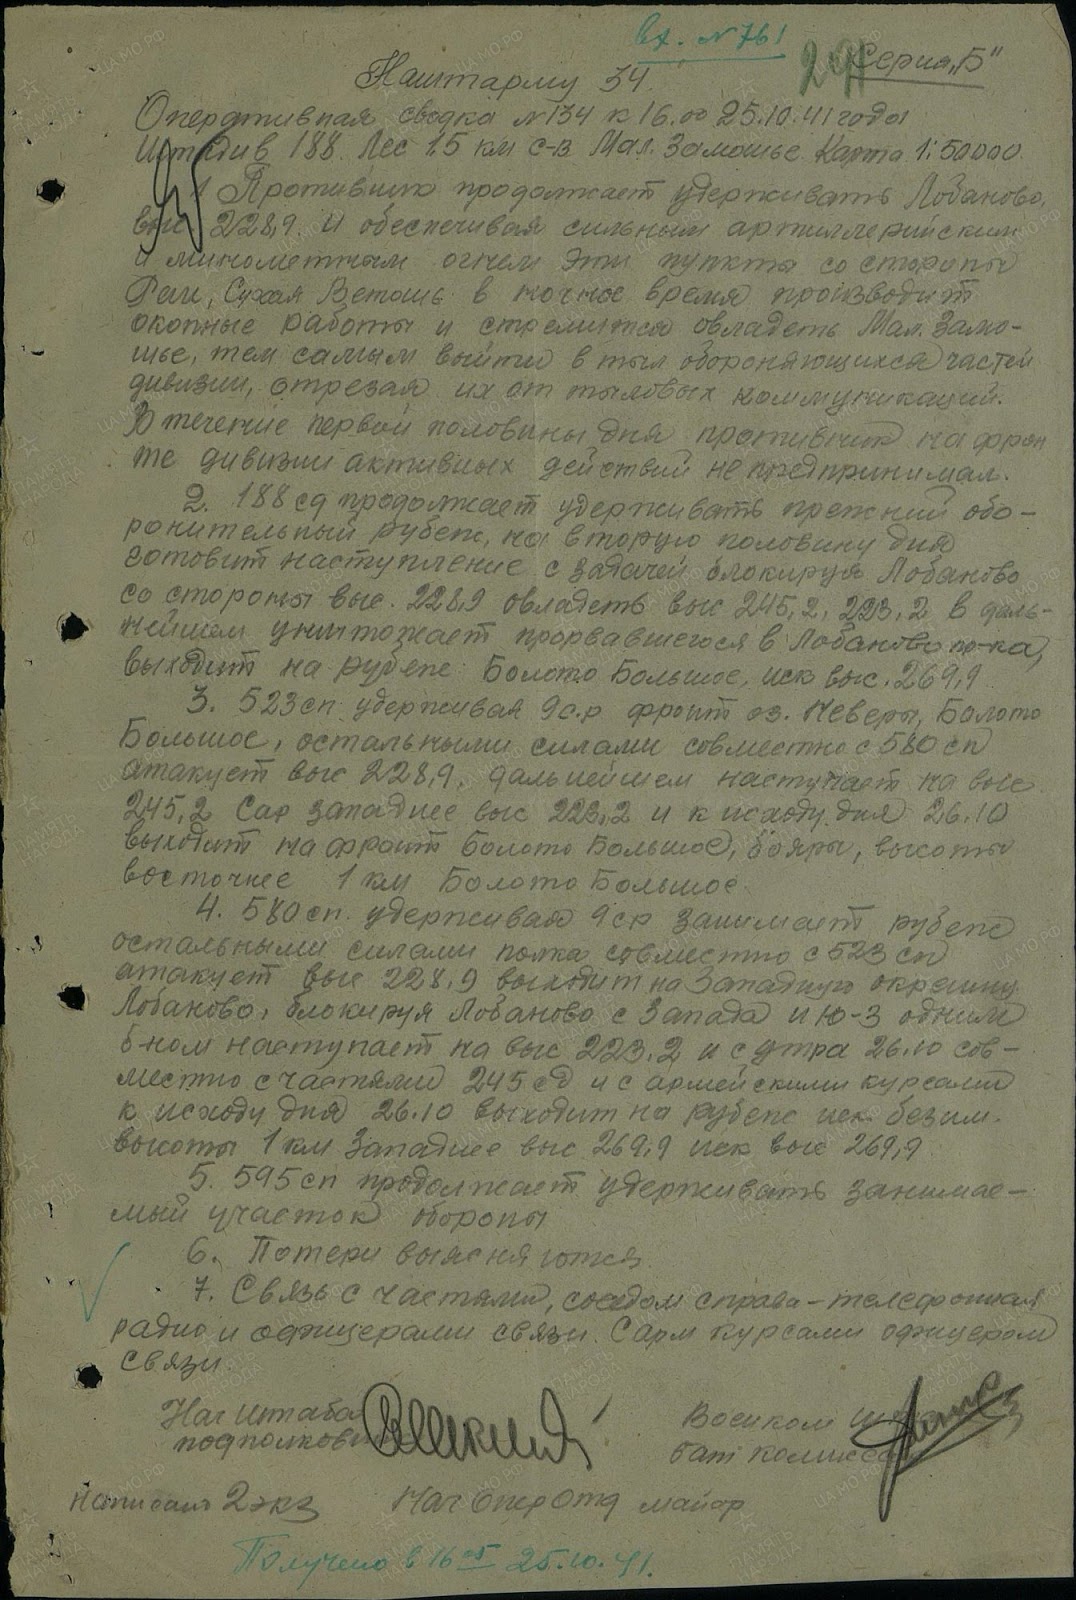 вх. №761
Серия „Б"
Наштарму 34.
Оперативная сводка №134 к 16.00 25.10.41 года
Штадив 188. Лес 1.5 км с-в Мал. Замошье. Карта 1:50000.
1. Противник продолжает удерживать Лобаново,
выс. 228,9. и обеспечивая сильным артиллерийским
и минометным огнем эти пункты со стороны
Сухая Ветошь в ночное время производит
окопные работы и стремится овладеть Мал. Замо-
шье, тем самым выйти в тыл обороняющихся частей
дивизии, отрезая их от тыловых коммуникаций.
В течение первой половины дня противник на фрон
те дивизии активных действий не предпринимал.
2. 188 сд продолжает удерживать прежний обо-
ронительный рубеж, на вторую половину дня
готовит наступление с задачей блокируя Лобаново
со стороны выс. 228,9 овладеть выс 245,2, 223,2 в даль-
нейшем уничтожает прорвавшегося в Лобаново пр-ка,
выходит на рубеже: Болото Большое, иск выс. 269,9
3. 523 сп удерживая 9 с.р фронт оз. Неверы, Болото
Большое, остальными силами совместно с 580 сп
атакует выс 228,9, дальнейшем наступает на выс.
245,2 Сар западнее выс 223,2 и к исходу дня 26.10
выходит на фронт Болото Большое, Бояры, высоты
восточнее 1 км Болото Большое.
4. 580 сп. удерживая 9 ср занимает рубеж
остальными силами полка совместно с 523 сп
атакует выс 228,9 выходит на Западную окраину
Лобаново, блокируя Лобаново с Запада и Ю-З одним
б-ном наступает на выс 223.2 и с утра 26.10 сов-
местно с частями 245 сд и с армейскими курсами
к исходу дня 26.10 выходит на рубеж иск. безим.
высоты 1 км Западнее выс 269,9 иск выс 269,9
5. 595 сп продолжает удерживать занимае-
мый участок обороны
6. Потери выясняются.
7. Связь с частями, соседом справа - телефонная
радио и офицерами связи. С арм курсами офицером
связи.
Нач штаба Военком
подполковник Бат комиссар
Написано 2 экз Нач Опер Отд майор
Получено в 16 05 25.10.41.